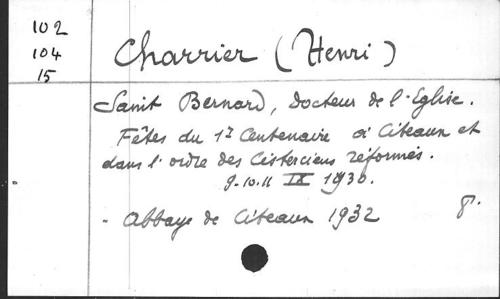 102
104
15
Charrier (Henri)
Saint Bernard, Docteur de l'Eglise.
Fêtes du 1er Centenaire à Citeaux et
dans l'ordre des Cisterciens réformés.
9-10-11 IX 1930.
- Abbaye de Citeaux 1932 8°.